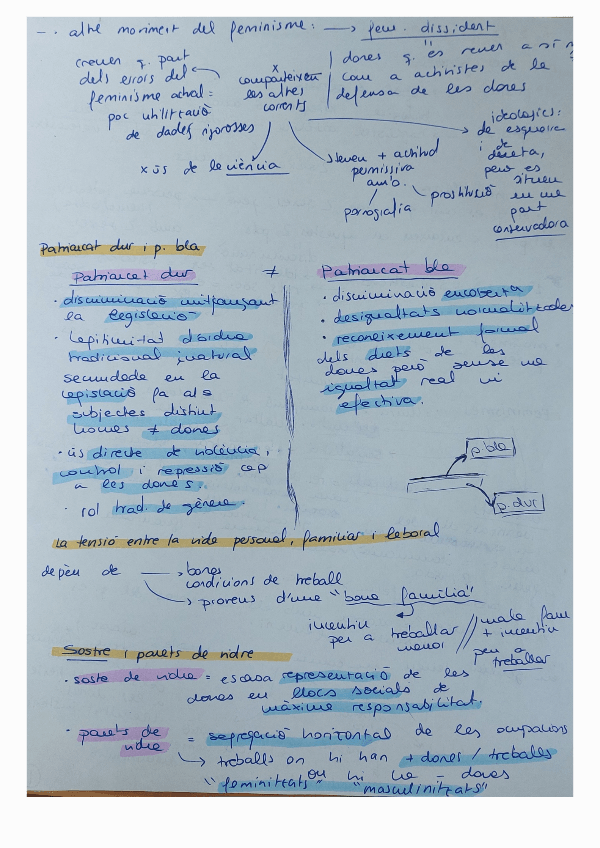 - · altre moviment del feminisme: → fem. dissident
creuen q. part
dels errors del
feminisme actual =
poc utilització
de dades rigoroses
x
comparteixen
les altres
corrents
dones q. "es reuen a sí
com a activistes de la
defensa de les dones
x ús de la ciència
steveu + actitud
permissiva
amb.
pornografia
prostitució
ideològics:
de esquerra
i de
dereta,
però es
situen
en una
part
conservadora
Patriarcat dur i p. bla
Patriarcat dur ≠ Patriarcat bla
· discriminació mitjançant
la legislació
· legitimitat d'ordre
tradicional i natural
secundada en la
legislació fa als
subjectes distint
homes ≠ dones
· ús directe de violència,
control i repressió cap
a les dones.
· rol trad. de gènere.
· discriminació encoberta
· desigualtats normalitzades
· reconeixement formal
dels drets de les
dones però sense una
igualtat real ni
efectiva.
p. bla
p. dur
La tensió entre la vida personal, familiar i laboral
depèn de → bones
condicions de treball
→ provens d'una "bona família"
incentiu
per a treballar
menor
// mala fam
+ incentiu
per a
treballar
Sostre i parets de vidre
· sostre de vidre = escasa representació de les
dones en llocs socials de
màxima responsabilitat.
· parets de
vidre = segregació horitzontal de les ocupacions
→ treballs on hi han + dones / treballs
on hi ha - dones
"feminitzats" "masculinitzats"